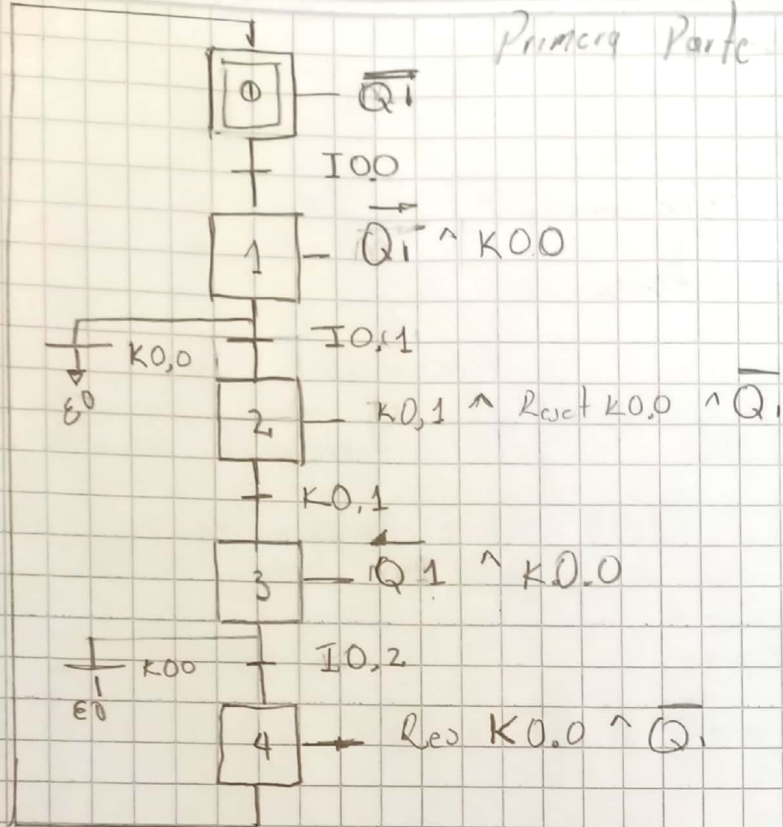 Primera Parte
0 Q1
I0.0
1 Q1 ^ K0.0
K0,0 I0,1
E0
2 K0,1 ^ Reset K0.0 ^ Q1
K0,1
3 Q1 ^ K0.0
K00 I0,2
E0
4 Res K0.0 ^ Q1